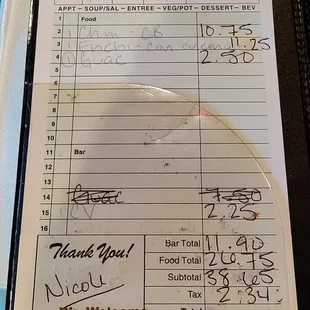 APPT - SOUP/SAL - ENTREE - VEG/POT - DESSERT - BEV
1 Food
2 1 Chim - CB 10.75
3 1 Enchi - 11.25
4 1 Guac 2.50
5
6
7
8
9
10
11 Bar
12
13
14 Guac 7.50
15 2.25
16
Thank You! Bar Total 11.90
Nicole Food Total 26.75
Subtotal 38.65
Tax 2.34
We Welcome Total